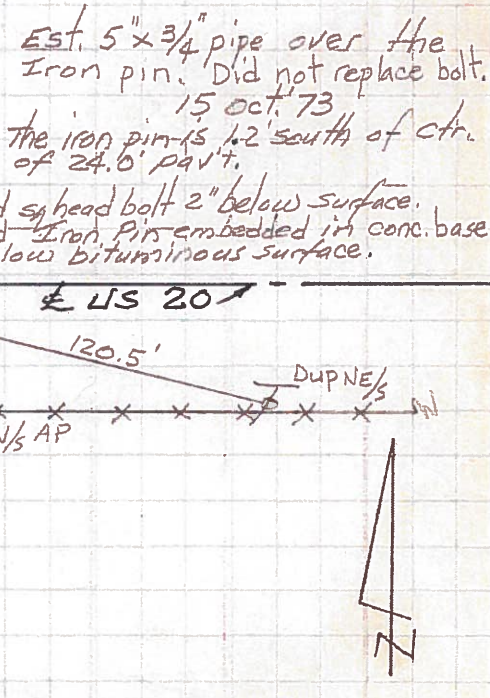 Est. 5" x 3/4" pipe over the
Iron pin. Did not replace bolt.
15 oct. '73
The iron pin is 1.2' south of ctr.
of 24.0' pav't.
d sq head bolt 2" below surface.
d Iron Pin embedded in conc. base
low bituminous surface.
℄ US 20
120.5'
DUP NE/s
N/s AP
N